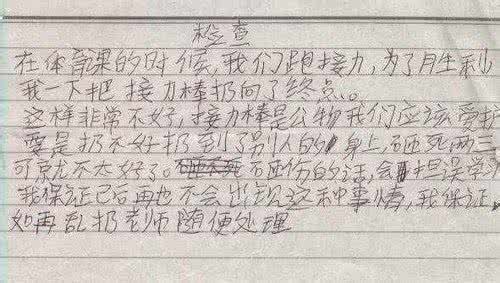 检查
在体育课的时候,我们跑接力,为了月生利
我一下把接力棒扔向了终点。
这样非常不好,接力棒是公物我们应该爱护
要是扔不好扔到了别人的身上,砸死两三
可就不太好了。砸伤的话,会担误学习
我保证已后再也不会出现这种事情,我保证
如再乱扔老师随便处理